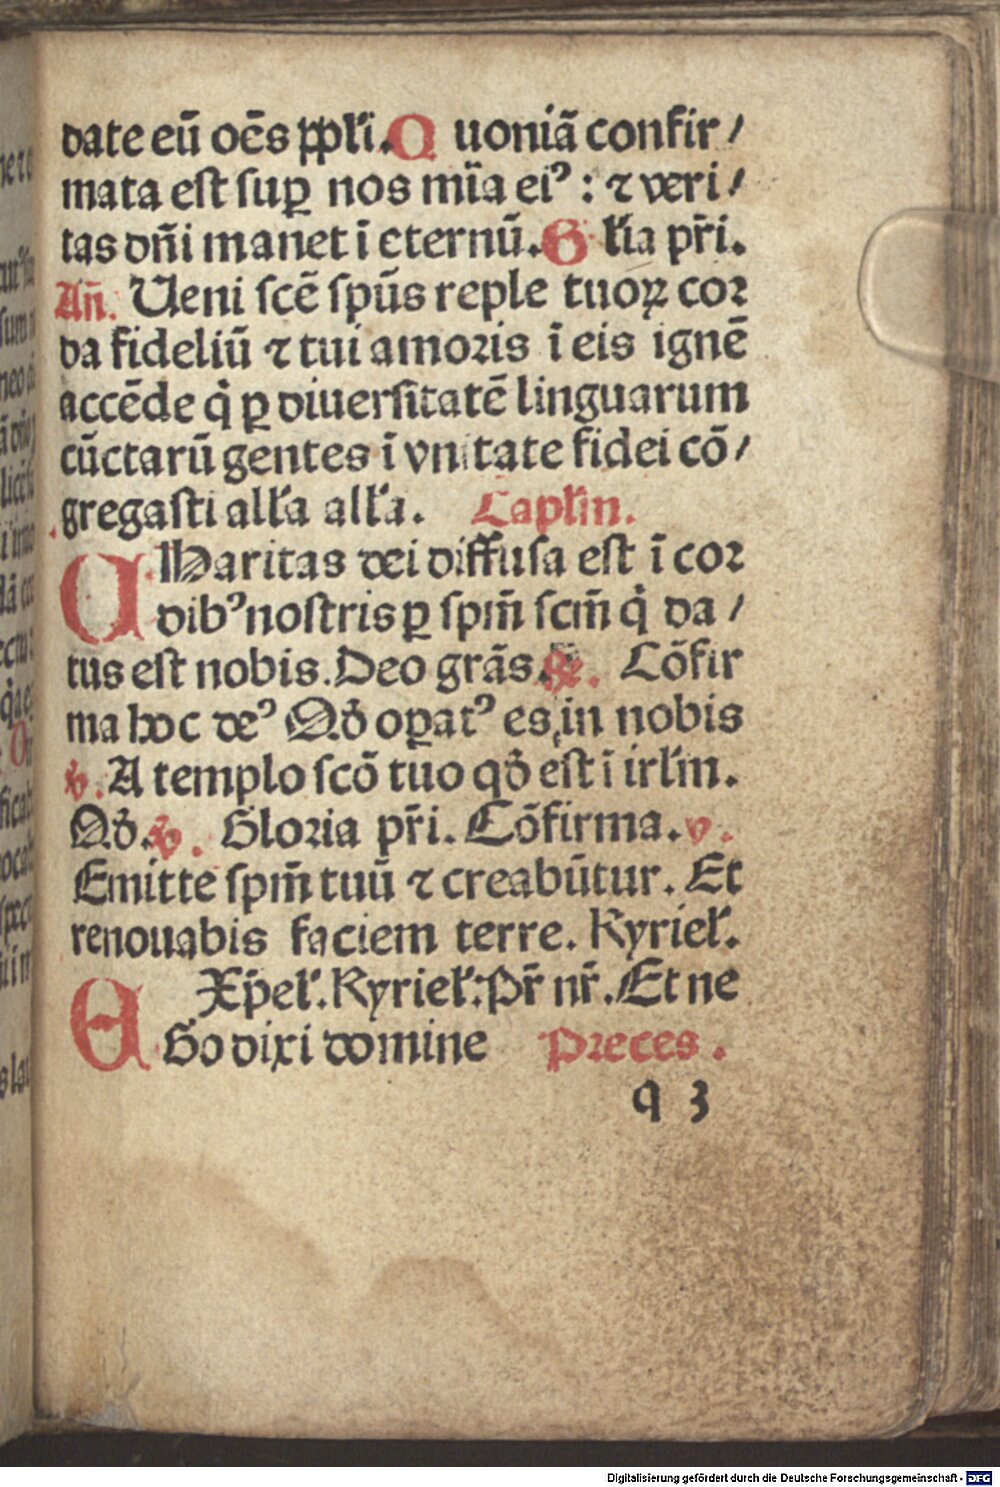 date eū oēs ppl'i. Q uoniā confir/
mata est suꝑ nos mīa ei⁹ : ⁊ veri/
tas dn̄i manet ī eternū. G l'ia pr̄i.
An̄. Ueni scē spūs reple tuoꝝ coꝛ
da fideliū ⁊ tui amoꝛis ī eis ignē
accēde q̇ ꝑ diuersitatē linguarum
cūctarū gentes ī vnitate fidei cō/
gregasti all'a all'a. Capl'm.
C Haritas dei diffusa est ī coꝛ
dib⁹ nostris ꝑ spm̄ scm̄ q̇ da /
tus est nobis. Deo grās. ℟. Cōfir
ma hoc de⁹ Qd̄ oꝑat⁹ es in nobis
℣. A templo scō tuo qd̄ est ī irl'm.
Qd̄. ℣. Gloꝛia pr̄i. Cōfirma. v.
Emitte spm̄ tuū ⁊ creabūtur. Et
renouabis faciem terre. Kyriel'.
Xp̄el'. Kyriel'. Pr̄ nr̄. Et ne
E Go dixi domine Pꝛeces.
q 3
Digitalisierung gefördert durch die Deutsche Forschungsgemeinschaft - DFG